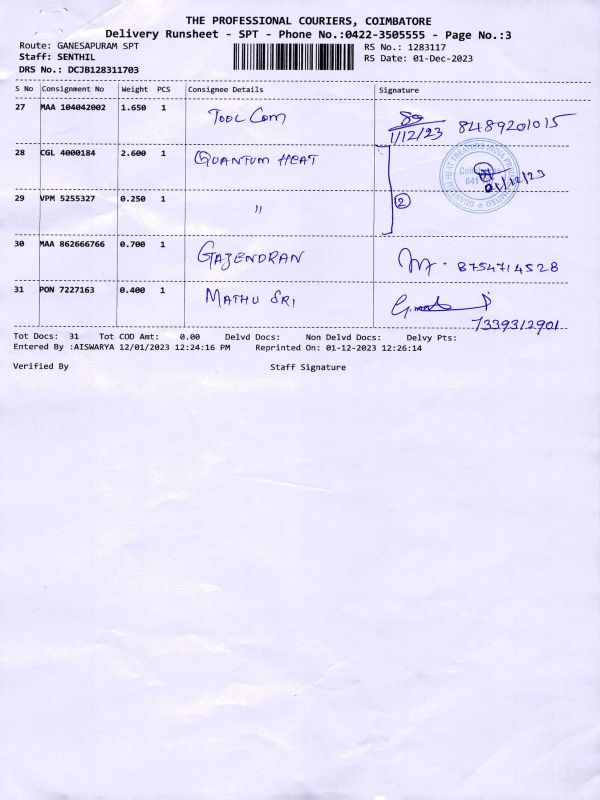 THE PROFESSIONAL COURIERS, COIMBATORE
Delivery Runsheet - SPT - Phone No.:0422-3505555 - Page No.:3
Route: GANESAPURAM SPT RS No.: 1283117
Staff: SENTHIL RS Date: 01-Dec-2023
DRS No.: DCJB128311703
S No Consignment No Weight PCS Consignee Details Signature
27 MAA 104042002 1.650 1 TOOL Com
1/12/23 8489201015
28 CGL 4000184 2.600 1 QUANTUM HEAT
QUANTUM HEAT TREATERS INDIA PRIVATE LIMITED
01/12/23
29 VPM 5255327 0.250 1 " 2
30 MAA 862666766 0.700 1 GAJENDRAN 8754714528
31 PON 7227163 0.400 1 MATHU SRI
7339312901
Tot Docs: 31 Tot COD Amt: 0.00 Delvd Docs: Non Delvd Docs: Delvy Pts:
Entered By :AISWARYA 12/01/2023 12:24:16 PM Reprinted On: 01-12-2023 12:26:14
Verified By Staff Signature